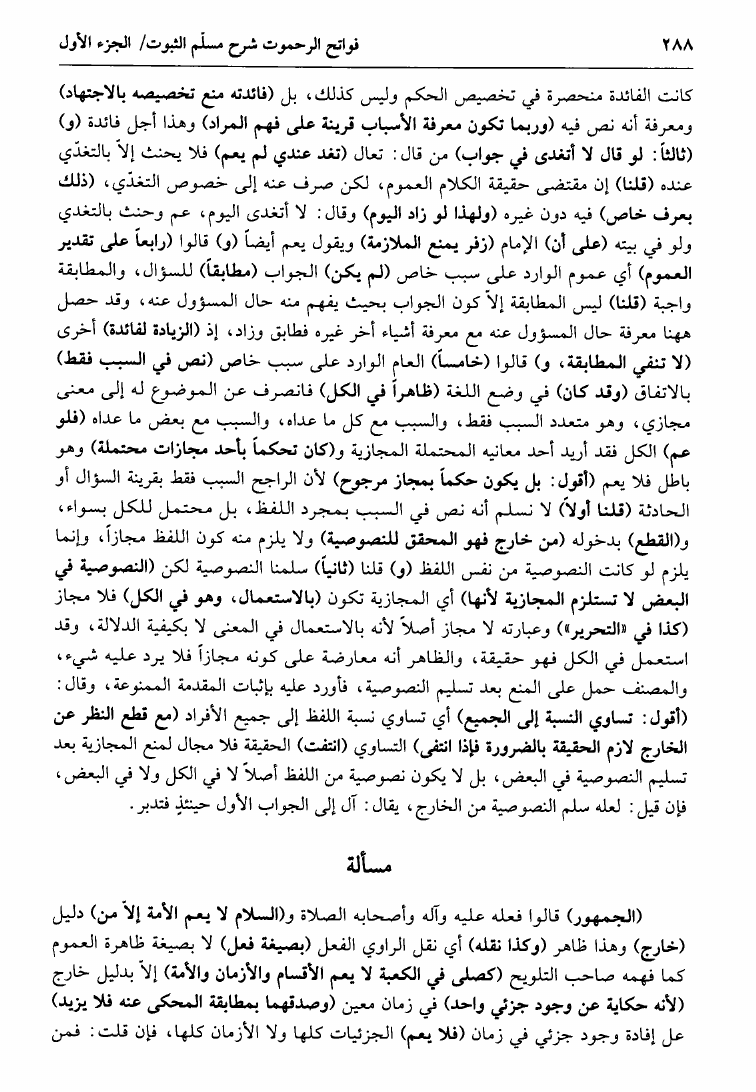 ٢٨٨
فواتح الرحموت شرح مسلّم الثبوت/ الجزء الأول
كانت الفائدة منحصرة في تخصيص الحكم وليس كذلك، بل (فائدته منع تخصيصه بالاجتهاد)
ومعرفة أنه نص فيه (وربما تكون معرفة الأسباب قرينة على فهم المراد) وهذا أجل فائدة (و)
(ثالثاً: لو قال لا أتغدى في جواب) من قال: تعال (تغد عندي لم يعم) فلا يحنث إلاّ بالتغدّي
عنده (قلنا) إن مقتضى حقيقة الكلام العموم، لكن صرف عنه إلى خصوص التغدّي، (ذلك
بعرف خاص) فيه دون غيره (ولهذا لو زاد اليوم) وقال: لا أتغدى اليوم، عم وحنث بالتغدي
ولو في بيته (على أن) الإمام (زفر يمنع الملازمة) ويقول يعم أيضاً (و) قالوا (رابعاً على تقدير
العموم) أي عموم الوارد على سبب خاص (لم يكن) الجواب (مطابقاً) للسؤال، والمطابقة
واجبة (قلنا) ليس المطابقة إلاّ كون الجواب بحيث يفهم منه حال المسؤول عنه، وقد حصل
ههنا معرفة حال المسؤول عنه مع معرفة أشياء أخر غيره فطابق وزاد، إذ (الزيادة لفائدة) أخرى
(لا تنفي المطابقة، و) قالوا (خامساً) العام الوارد على سبب خاص (نص في السبب فقط)
بالاتفاق (وقد كان) في وضع اللغة (ظاهراً في الكل) فانصرف عن الموضوع له إلى معنى
مجازي، وهو متعدد السبب فقط، والسبب مع كل ما عداه، والسبب مع بعض ما عداه (فلو
عم) الكل فقد أريد أحد معانيه المحتملة المجازية و(كان تحكماً بأحد مجازات محتملة) وهو
باطل فلا يعم (أقول: بل يكون حكماً بمجاز مرجوح) لأن الراجح السبب فقط بقرينة السؤال أو
الحادثة (قلنا أولاً) لا نسلم أنه نص في السبب بمجرد اللفظ، بل محتمل للكل بسواء،
و(القطع) بدخوله (من خارج فهو المحقق للنصوصية) ولا يلزم منه كون اللفظ مجازاً، وإنما
يلزم لو كانت النصوصية من نفس اللفظ (و) قلنا (ثانياً) سلمنا النصوصية لكن (النصوصية في
البعض لا تستلزم المجازية لأنها) أي المجازية تكون (بالاستعمال، وهو في الكل) فلا مجاز
(كذا في «التحرير») وعبارته لا مجاز أصلاً لأنه بالاستعمال في المعنى لا بكيفية الدلالة، وقد
استعمل في الكل فهو حقيقة، والظاهر أنه معارضة على كونه مجازاً فلا يرد عليه شيء،
والمصنف حمل على المنع بعد تسليم النصوصية، فأورد عليه بإثبات المقدمة الممنوعة، وقال:
(أقول: تساوي النسبة إلى الجميع) أي تساوي نسبة اللفظ إلى جميع الأفراد (مع قطع النظر عن
الخارج لازم الحقيقة بالضرورة فإذا انتفى) التساوي (انتفت) الحقيقة فلا مجال لمنع المجازية بعد
تسليم النصوصية في البعض، بل لا يكون نصوصية من اللفظ أصلاً لا في الكل ولا في البعض،
فإن قيل: لعله سلم النصوصية من الخارج، يقال: آل إلى الجواب الأول حينئذٍ فتدبر.
مسألة
(الجمهور) قالوا فعله عليه وآله وأصحابه الصلاة و(السلام لا يعم الأمة إلاّ من) دليل
(خارج) وهذا ظاهر (وكذا نقله) أي نقل الراوي الفعل (بصيغة فعل) لا بصيغة ظاهرة العموم
كما فهمه صاحب التلويح (كصلى في الكعبة لا يعم الأقسام والأزمان والأمة) إلاّ بدليل خارج
(لأنه حكاية عن وجود جزئي واحد) في زمان معين (وصدقهما بمطابقة المحكى عنه فلا يزيد)
عل إفادة وجود جزئي في زمان (فلا يعم) الجزئيات كلها ولا الأزمان كلها، فإن قلت: فمن